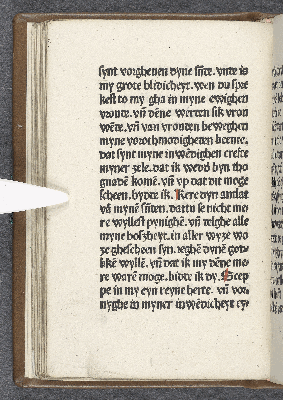 synt vorgheuen dyne sūte. vnte is
my grote blidicheyt. wen du spre
kest to my gha in myne ewighen
vroute. vn̄ dēne werten sik vron
wēte. vn̄ van vrouten beweghen
myne votothmodigheten beene.
dat synt myne inwēdighen crefte
myner zele. dat ik wedd byn tho
gnadē komē. vn̄ vp dat dit moge
scheen. bydte ik. Kere dyn antlat
vā mynē sūten. dattu se nicht me
re wyllest pynighē. vn̄ telghe alle
myne boszheyt. in aller wyze wo
ze ghescheen syn. ieghē dynē got
likē wyllē. vn̄ dat ik my dēne me
re warē moge. bidte ik dy. Scep
pe in my eyn reyne herte. vn̄ vor
nyghe in myner inwēdicheyt ey